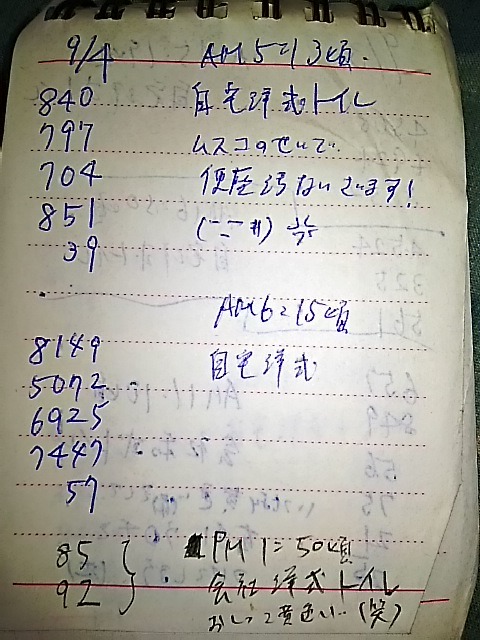 9/4 AM 5:13頃.
840 自宅洋式トイレ
797 ムスコのせいで
704 便座汚ないでます!
851 (－－#)
39
AM 6:15頃
8149 自宅洋式
5072
6925
7447
57
85 PM 1:50頃
92 会社洋式トイレ
おしっこ黄色い..(笑)